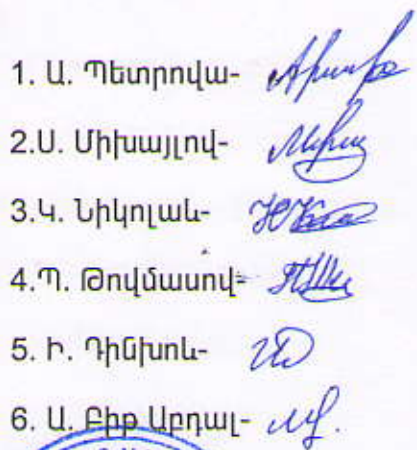 1. Ա. Պետրովա-
2.Ս. Միխայլով-
3.Կ. Նիկոլաև-
4.Պ. Թովմասով-
5. Ի. Դինխոև-
6. Ա. Բիք Աբդալ-